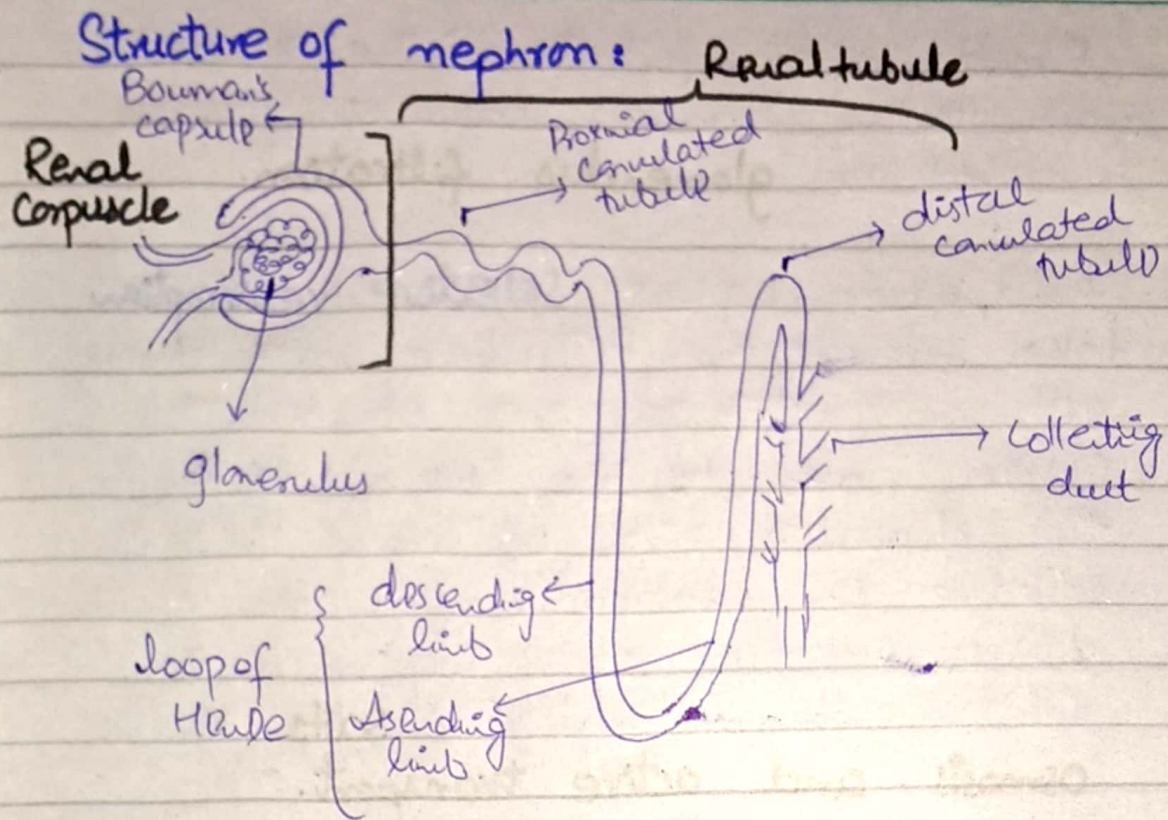 Structure of nephron:
Renal tubule
Bowman's
capsule
Renal
Corpuscle
Proximal
convulated
tubule
distal
convulated
tubule
glomerulus
Collecting
duct
descending
limb
loop of
Henle
Asending
limb